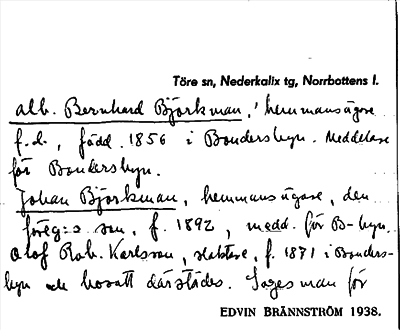 Töre sn, Nederkalix tg, Norrbottens l.
Alb. Bernhard Björkman, hemmansägare
f.d., född 1856 i Bondersbyn. Meddelare
för Bondersbyn.
Johan Björkman, hemmansägare, den
föreg:s son, f. 1892, medd. för B-byn.
Olof Rob. Karlsson, slaktare, f. 1871 i Bonders-
byn och bosatt därstädes. Sagesman för
EDVIN BRÄNNSTRÖM 1938.